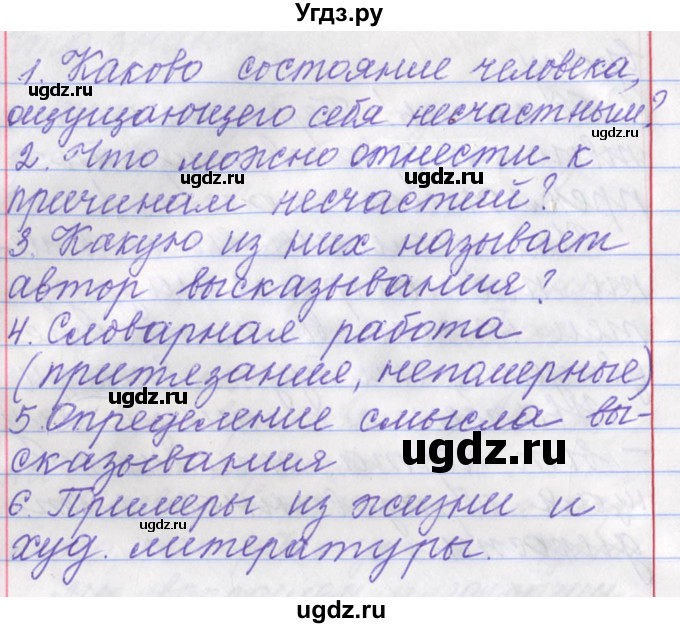 Угдз.ру
1. Каково состояние человека,
ощущающего себя несчастным?
2. Что можно отнести к
причинам несчастий?
3. Какую из них называет
автор высказывания?
4. Словарная работа
(притязания, непомерные)
5. Определение смысла вы-
сказывания
6. Примеры из жизни и
худ. литературы.
ugdz.ru
ugdz.ru
ugdz.ru
ugdz.ru
ugdz.ru
ugdz.ru
ugdz.ru
ugdz.ru
ugdz.ru
ugdz.ru